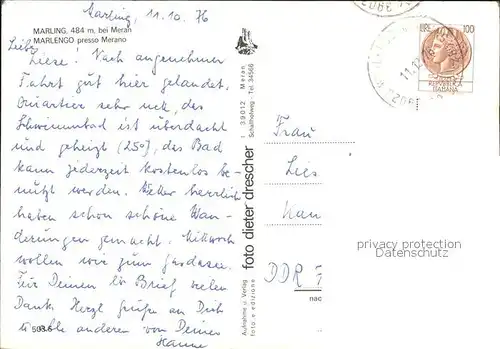 Marling, 11.10.76
MARLING, 484 m, bei Meran
MARLENGO presso Merano
Liebe
Liese! Nach angenehmer
Fahrt gut hier gelandet.
Quartier sehr nett, das
Schwimmbad ist überdacht
und geheizt (25°), das Bad
kann jederzeit kostenlos be-
nutzt werden. Wetter herrlich
haben schon schöne Wan-
derungen gemacht. Mittwoch
wollen wir zum Gardasee.
Für Deinen lb Brief vielen
Dank. Herzl. Grüße an Dich
u. alle anderen von Deiner
Hanne
5036
Aufnahme u. Verlag
foto e edizione
foto dieter drescher
I 39012 Meran
Schafferweg Tel. 34568
LIRE 100
REPUBBLICA
ITALIANA
Frau
Lies
DDR
nac
privacy protection
Datenschutz